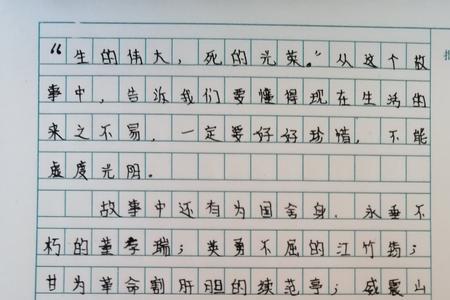 “生的伟大，死的光荣。”从这个故
事中，告诉我们要懂得现在生活的
来之不易，一定要好好珍惜，不能
虚度光阴。
故事中还有为国舍身，永垂不
朽的董存瑞；英勇不屈的江竹筠；
甘为革命割肝胆的续范亭；威震山